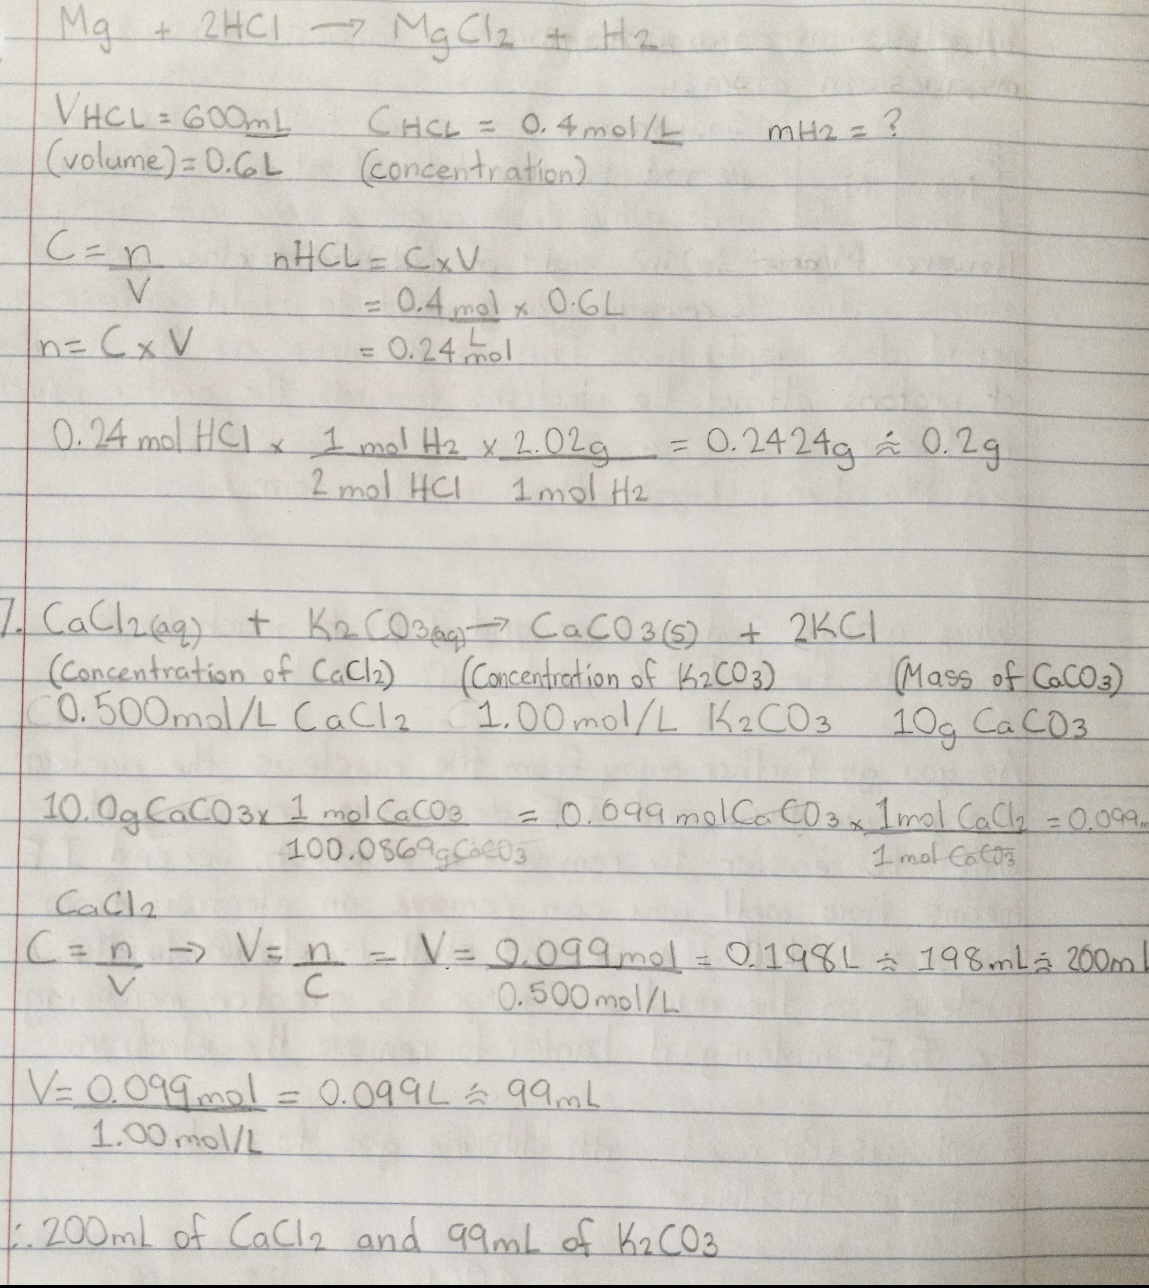 Mg + 2HCl → MgCl2 + H2
VHCL = 600mL CHCL = 0.4mol/L mH2 = ?
(volume) = 0.6L (concentration)
C = n/V nHCL = C x V
= 0.4 mol/L x 0.6L
n = C x V = 0.24 mol
0.24 mol HCl x 1 mol H2/2 mol HCl x 2.02g/1mol H2 = 0.2424g ≈ 0.2g
7. CaCl2(aq) + K2CO3(aq) → CaCO3(s) + 2KCl
(Concentration of CaCl2) (Concentration of K2CO3) (Mass of CaCO3)
0.500mol/L CaCl2 1.00mol/L K2CO3 10g CaCO3
10.0g CaCO3 x 1 mol CaCO3/100.0869g CaCO3 = 0.099 mol CaCO3 x 1mol CaCl2/1 mol CaCO3 = 0.099
CaCl2
C = n/V → V = n/C = V = 0.099mol/0.500mol/L = 0.198L ≈ 198mL ≈ 200ml
V = 0.099mol/1.00mol/L = 0.099L ≈ 99mL
∴ 200mL of CaCl2 and 99mL of K2CO3